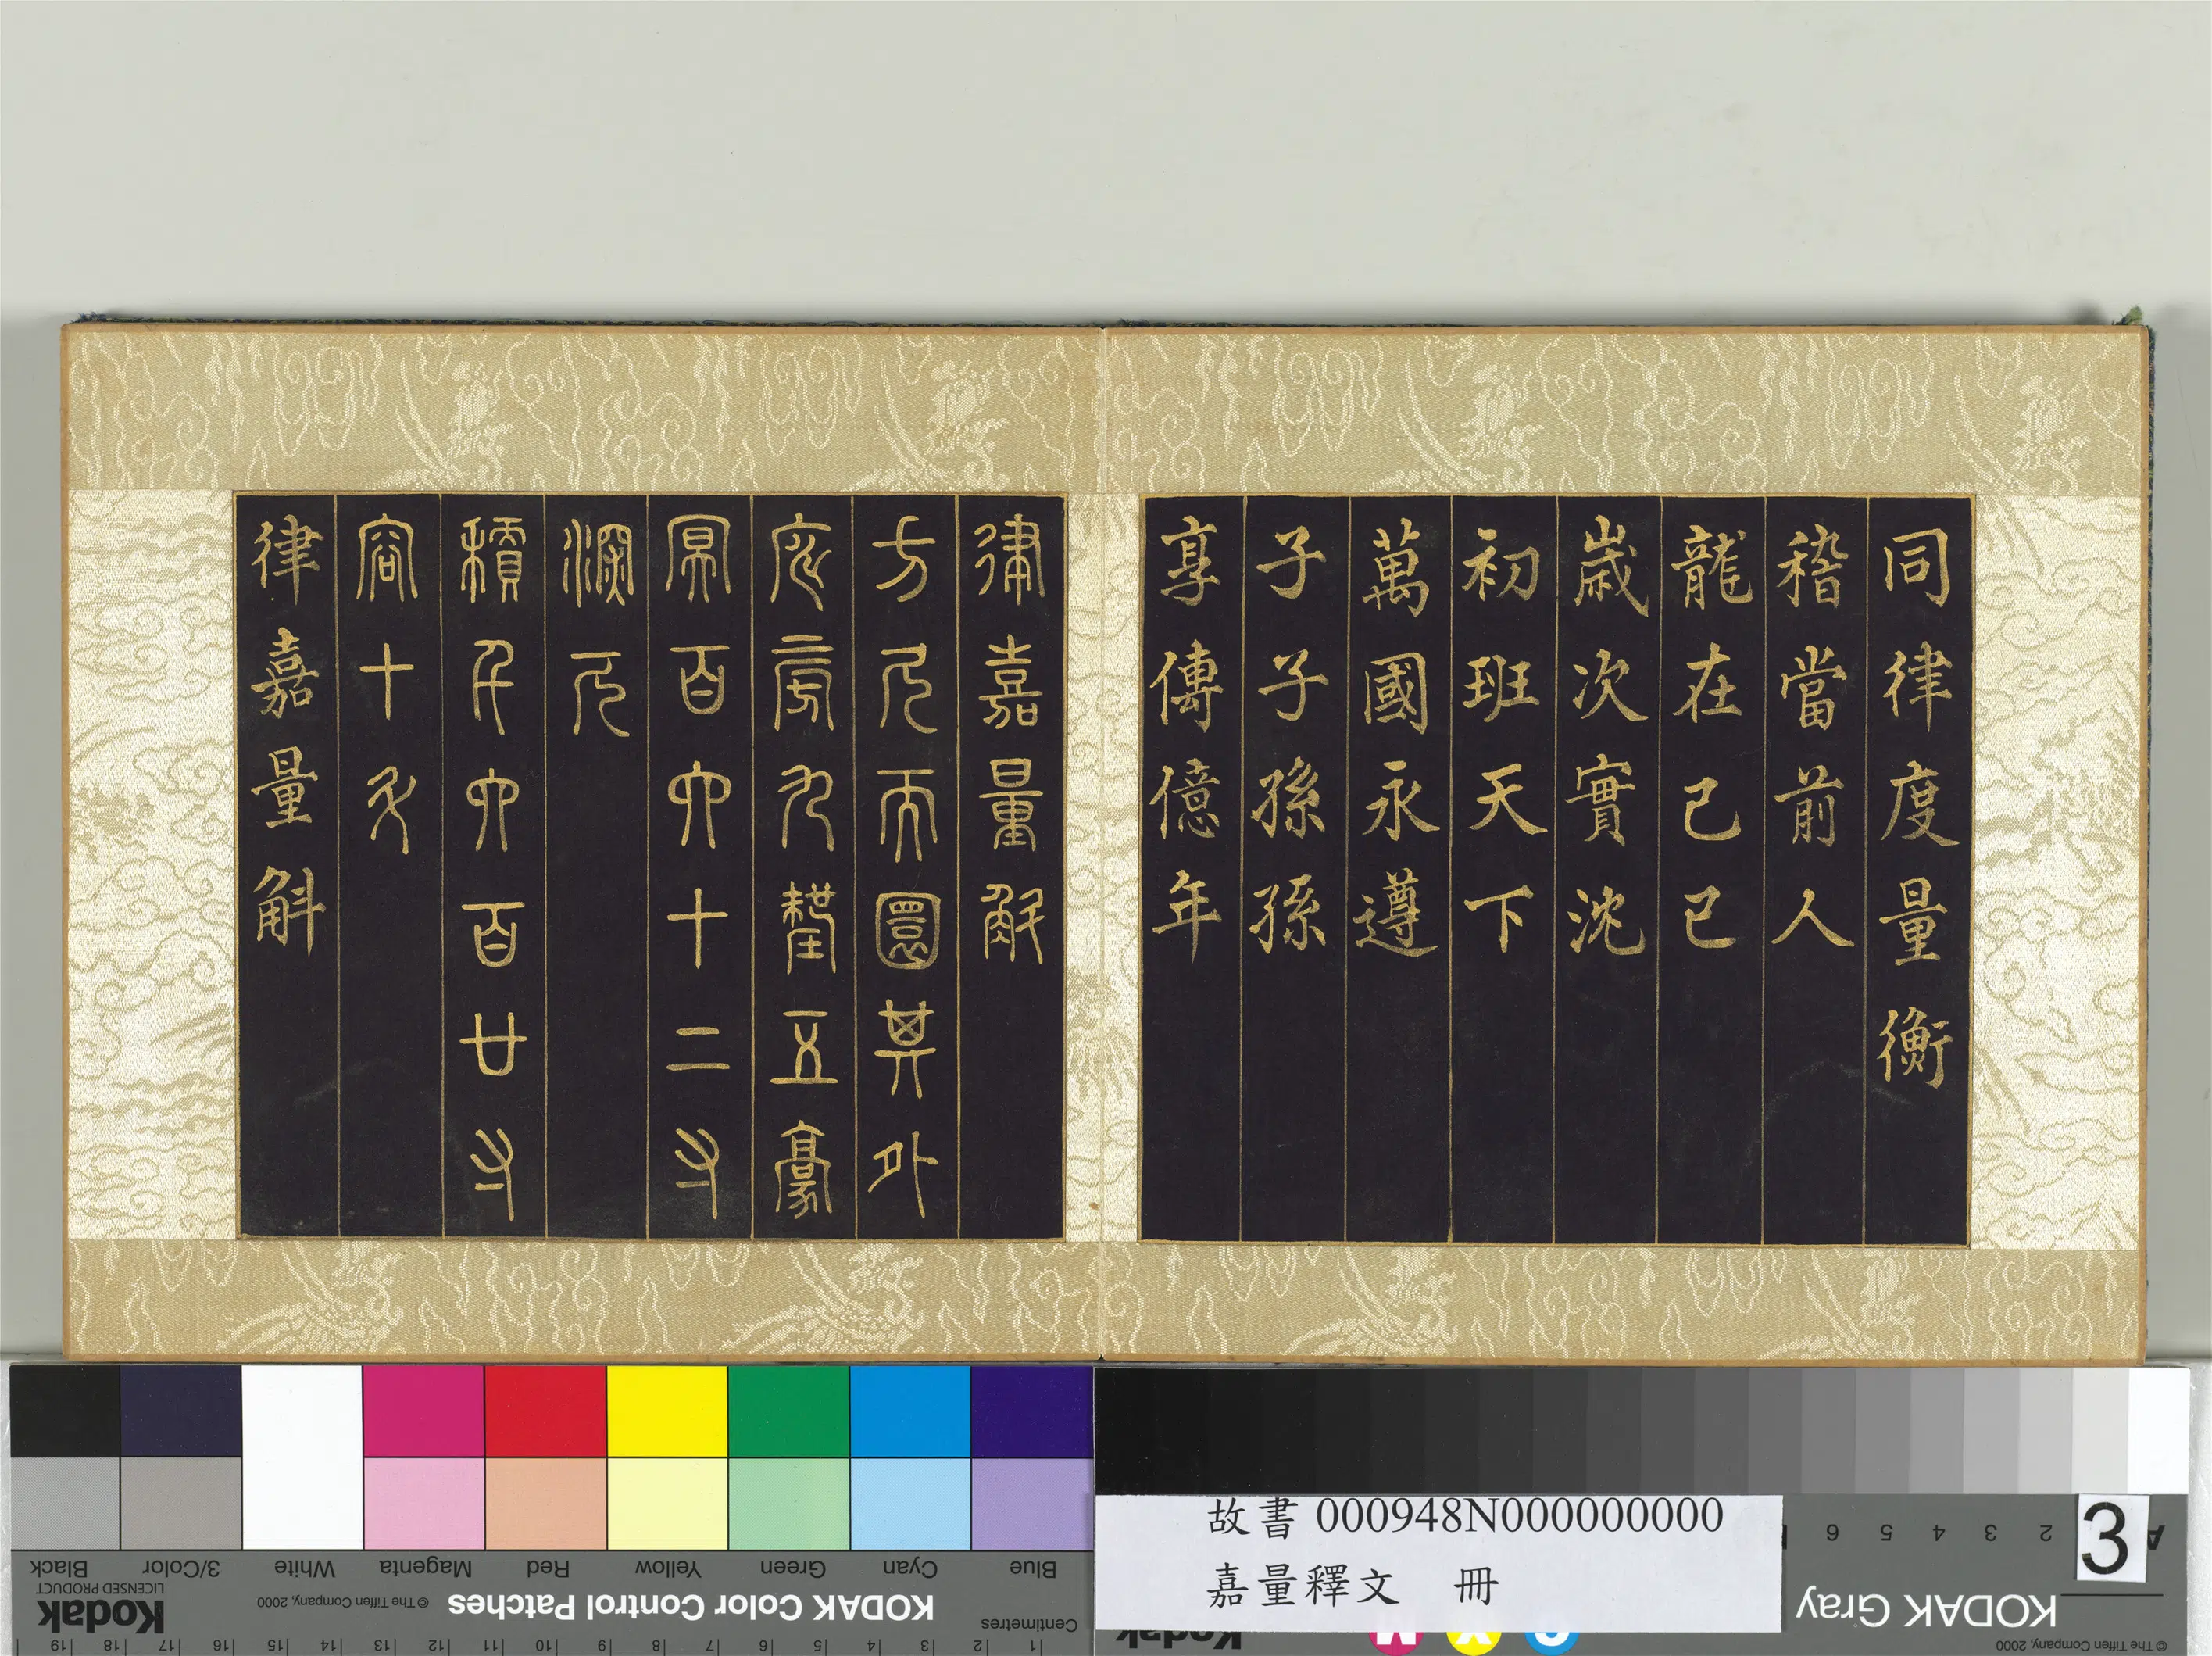 同律度量衡
稽當前人
龍在己巳
歲次實沈
初班天下
萬國永遵
子子孫孫
享傳億年
律嘉量斛
方尺而圜其外
庣旁九釐五豪
冥百六十二寸
深尺
積千六百廿寸
容十斗
律嘉量斛
故書 000948N000000000
嘉量釋文 冊
3
Blue Cyan Green Yellow Red Magenta White 3/Color Black
Centimetres
KODAK Color Control Patches
© The Tiffen Company, 2000
Kodak
LICENSED PRODUCT
1 2 3 4 5 6 7 8 9 10 11 12 13 14 15 16 17 18 19
A 2 3 4 5 6
KODAK Gray
© The Tiffen Company, 2000
Kodak
C Y M